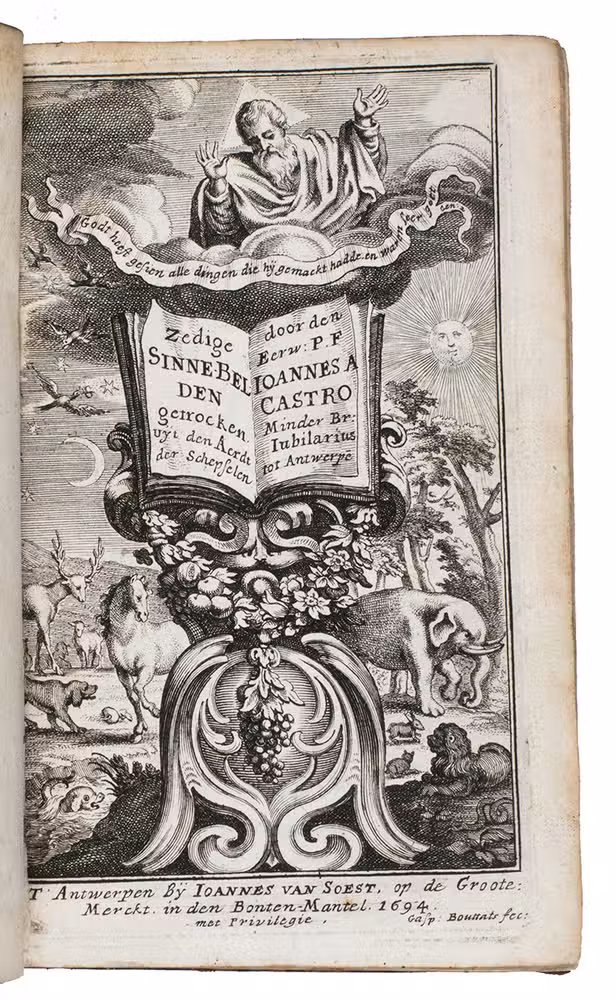 Godt heeft gesien alle dingen die hy gemackt hadde. en waren seer goet
Zedige
SINNE-BEL
DEN
getrocken
uÿt den Aerdt
der Schepselen
door den
Eerw: P. F
IOANNES A
CASTRO
Minder Br:
Iubilarius
tot Antwerpe
T' Antwerpen Bÿ IOANNES VAN SOEST, op de Groote:
Merckt. in den Bonten-Mantel. 1694.
met Privilegie.
Gasp: Bouttats fec: